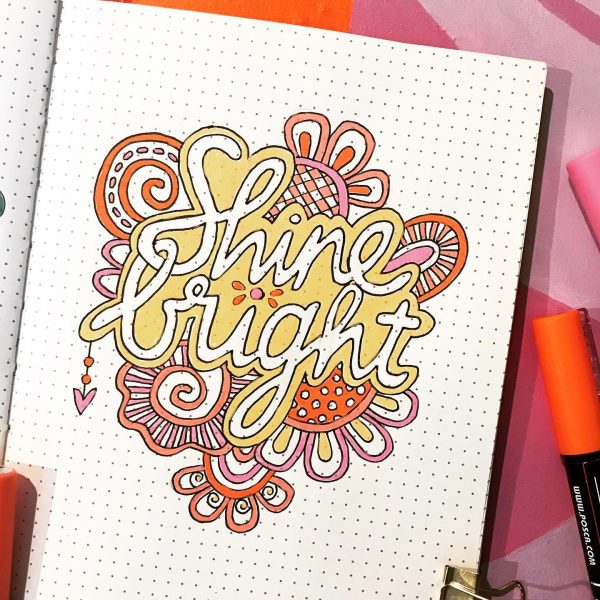 Shine
bright
www.posca.com